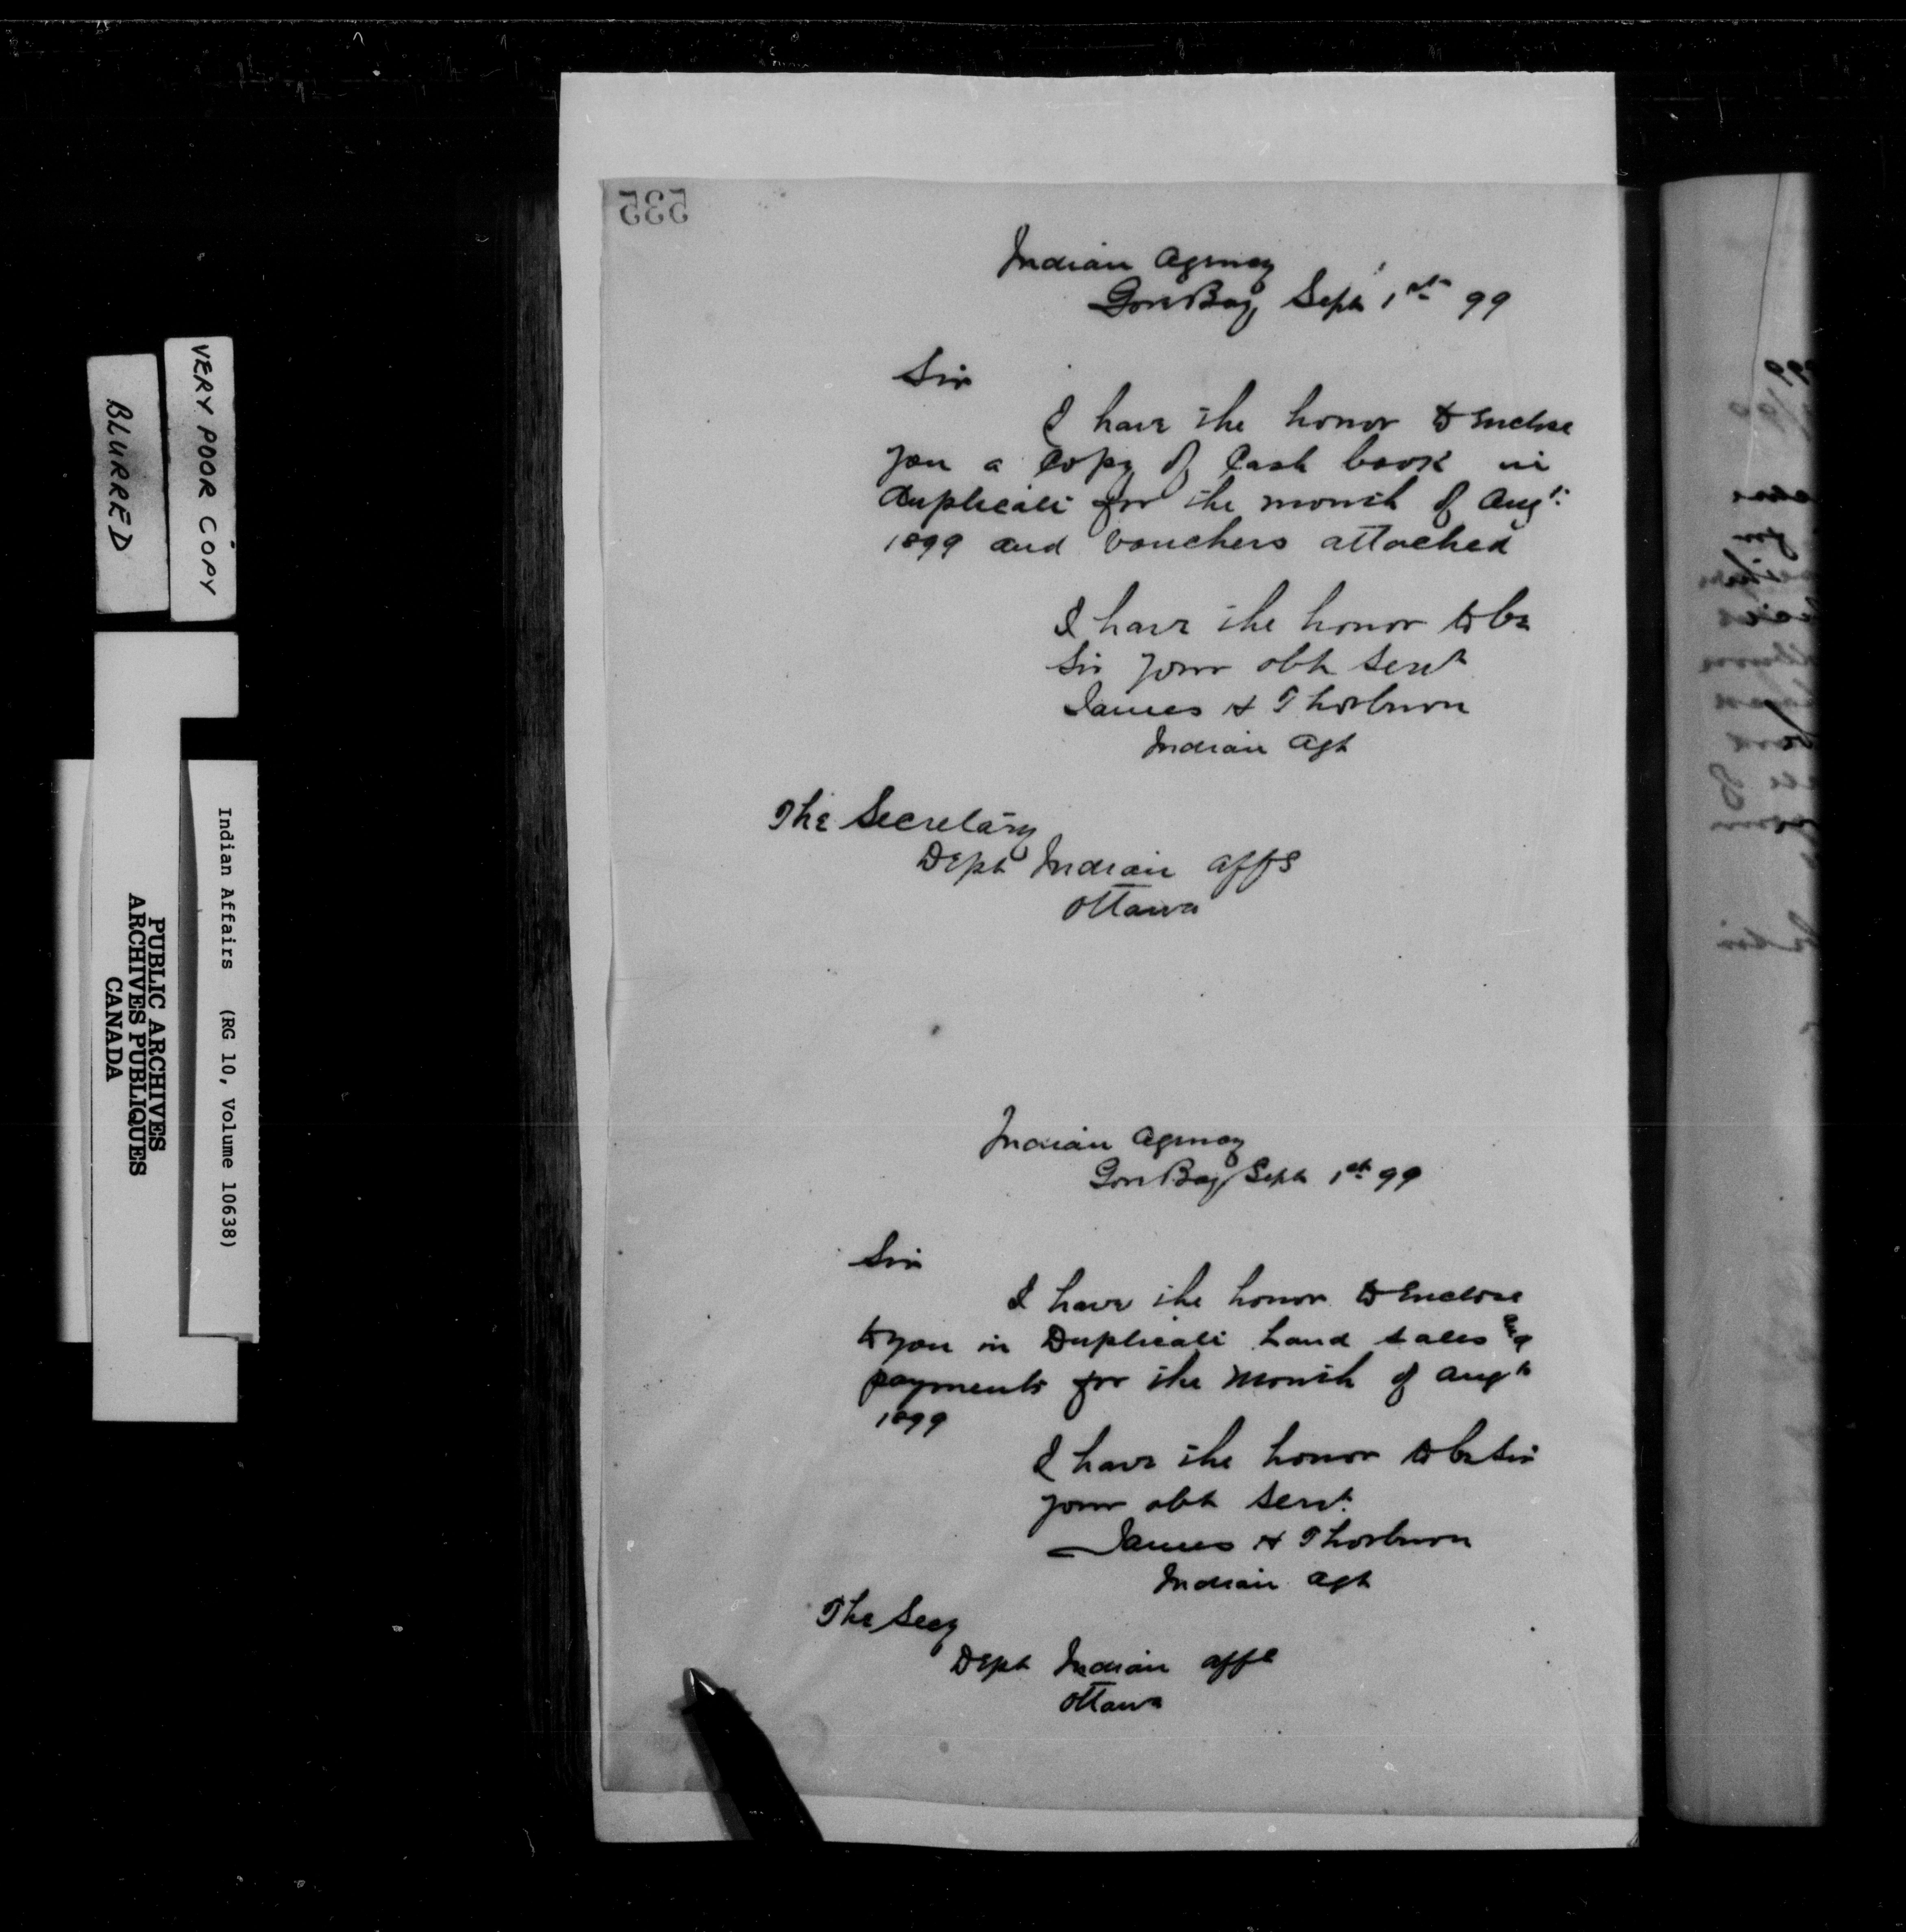 535
Indian Agency
Gore Bay Sept 1st 99
Sir
I have the honor to Enclose
you a Copy of Cash book in
duplicate for the month of Augt
1899 and vouchers attached
I have the honor to be
Sir your obt Servt
James H Thorburn
Indian Agt
The Secretary
Dept Indian Affs
Ottawa
Indian Agency
Gore Bay Sept 1st 99
Sir
I have the honor to Enclose
to you in Duplicate Land sales and
payments for the month of Augt
1899
I have the honor to be Sir
your obt Servt
James H Thorburn
Indian Agt
The Secy
Dept Indian Affs
Ottawa
VERY POOR COPY
BLURRED
Indian Affairs (RG 10, Volume 10638)
PUBLIC ARCHIVES
ARCHIVES PUBLIQUES
CANADA